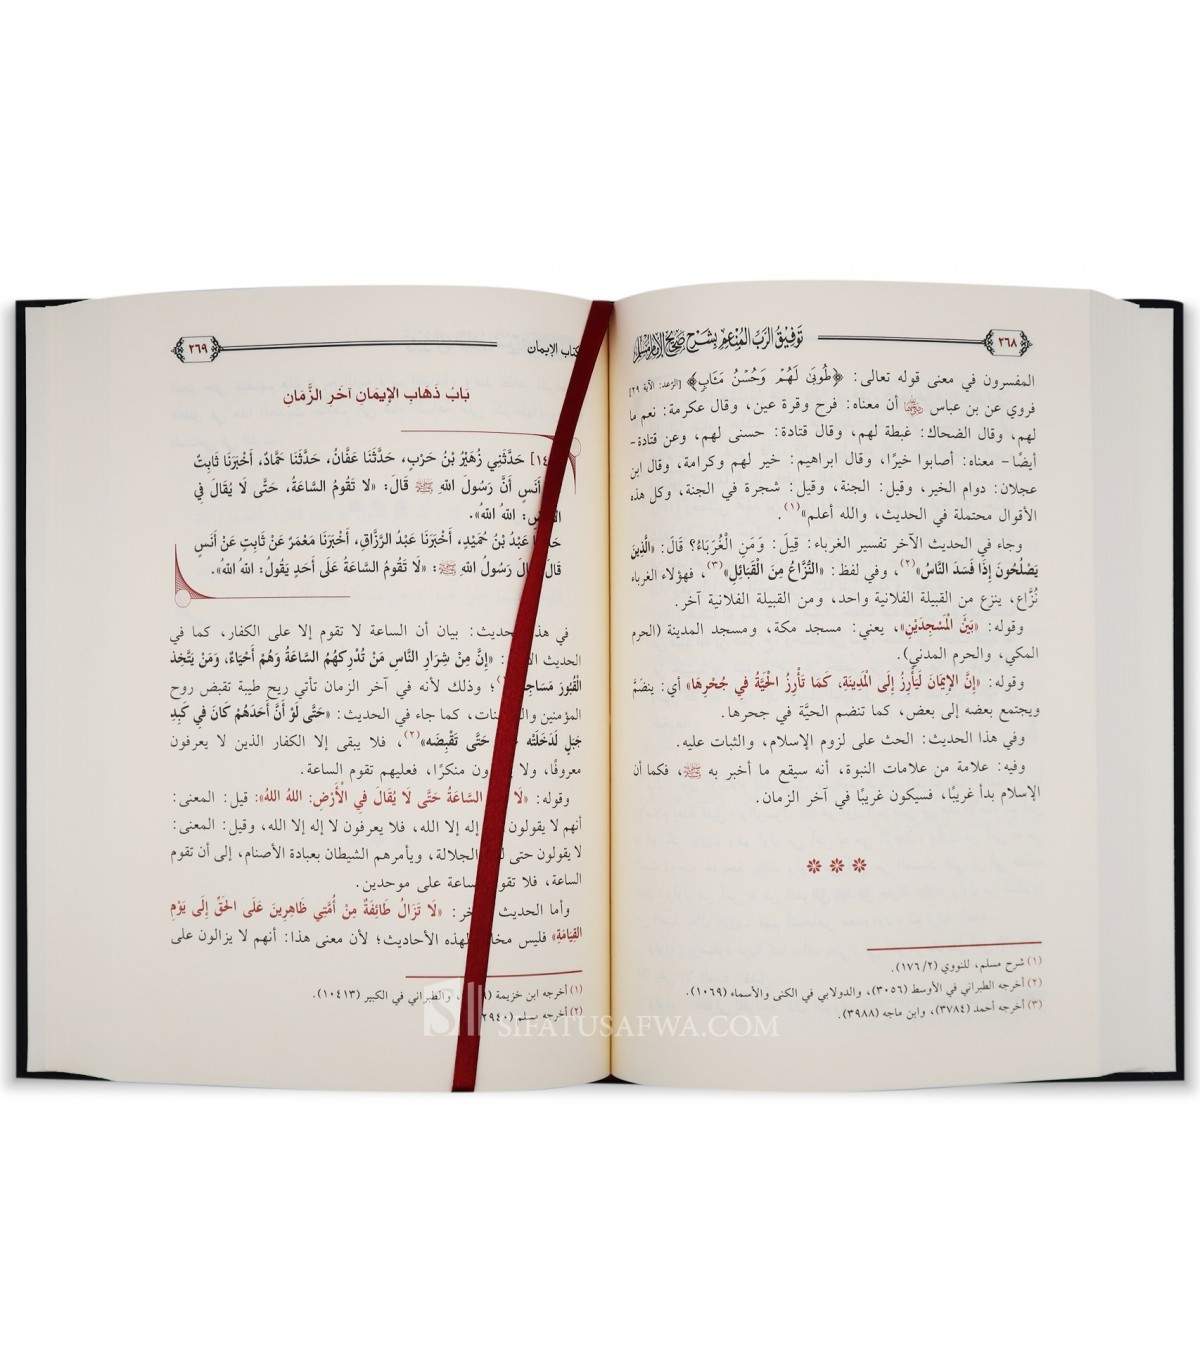 ٣٦٨
توفيق الرب المنعم بشرح صحيح الإمام مسلم
المفسرون في معنى قوله تعالى: ﴿طُوبَىٰ لَهُمْ وَحُسْنُ مَـَٔابٍ﴾ [الرعد: الآية ٢٩]
فروي عن بن عباس أن معناه: فرح وقرة عين، وقال عكرمة: نعم ما
لهم، وقال الضحاك: غبطة لهم، وقال قتادة: حسنى لهم، وعن قتادة-
أيضًا- معناه: أصابوا خيرًا، وقال ابراهيم: خير لهم وكرامة، وقال ابن
عجلان: دوام الخير، وقيل: الجنة، وقيل: شجرة في الجنة، وكل هذه
الأقوال محتملة في الحديث، والله أعلم»(١).
وجاء في الحديث الآخر تفسير الغرباء: قِيلَ: وَمَنِ الْغُرَبَاءُ؟ قَالَ: «الَّذِينَ
يَصْلُحُونَ إِذَا فَسَدَ النَّاسُ»(٢)، وفي لفظ: «النُّزَّاعُ مِنَ الْقَبَائِلِ»(٣)، فهؤلاء الغرباء
نُزَّاع، ينزع من القبيلة الفلانية واحد، ومن القبيلة الفلانية آخر.
وقوله: «بَيْنَ الْمَسْجِدَيْنِ»، يعني: مسجد مكة، ومسجد المدينة (الحرم
المكي، والحرم المدني).
وقوله: «إِنَّ الإِيمَانَ لَيَأْرِزُ إِلَى الْمَدِينَةِ، كَمَا تَأْرِزُ الْحَيَّةُ فِي جُحْرِهَا» أي: ينضَمَّ
ويجتمع بعضه إلى بعض، كما تنضم الحيَّة في جحرها.
وفي هذا الحديث: الحث على لزوم الإسلام، والثبات عليه.
وفيه: علامة من علامات النبوة، أنه سيقع ما أخبر به ﷺ، فكما أن
الإسلام بدأ غريبًا، فسيكون غريبًا في آخر الزمان.
(١) شرح مسلم، للنووي (٢/ ١٧٦).
(٢) أخرجه الطبراني في الأوسط (٣٠٥٦)، والدولابي في الكنى والأسماء (١٠٦٩).
(٣) أخرجه أحمد (٣٧٨٤)، وابن ماجه (٣٩٨٨).
كتاب الإيمان
٢٦٩
بَابُ ذَهَابِ الإِيمَانِ آخَرِ الزَّمَانِ
حَدَّثَنِي زُهَيْرُ بْنُ حَرْبٍ، حَدَّثَنَا عَفَّانُ، حَدَّثَنَا حَمَّادٌ، أَخْبَرَنَا ثَابِتٌ
أَنَسٍ أَنَّ رَسُولَ اللهِ ﷺ قَالَ: «لَا تَقُومُ السَّاعَةُ، حَتَّى لَا يُقَالَ فِي
اللهُ اللهُ».
عَبْدُ بْنُ حُمَيْدٍ، أَخْبَرَنَا عَبْدُ الرَّزَّاقِ، أَخْبَرَنَا مَعْمَرٌ عَنْ ثَابِتٍ عَنْ أَنَسٍ
قَالَ رَسُولُ اللهِ ﷺ: «لَا تَقُومُ السَّاعَةُ عَلَى أَحَدٍ يَقُولُ: اللهُ اللهُ».
في هذا الحديث: بيان أن الساعة لا تقوم إلا على الكفار، كما في
الحديث «إِنَّ مِنْ شِرَارِ النَّاسِ مَنْ تُدْرِكهُمُ السَّاعَةُ وَهُمْ أَحْيَاءٌ، وَمَنْ يَتَّخِذ
الْقُبُورَ مَسَاجِدَ»؛ وذلك لأنه في آخر الزمان تأتي ريح طيبة تقبض روح
المؤمنين كما جاء في الحديث: «حَتَّى لَوْ أَنَّ أَحَدَهُمْ كَانَ فِي كَبِدِ
جَبَلٍ لَدَخَلَتْه حَتَّى تَقْبِضَه»(٢)، فلا يبقى إلا الكفار الذين لا يعرفون
معروفًا، ولا منكرًا، فعليهم تقوم الساعة.
وقوله: «لَا السَّاعَةُ حَتَّى لَا يُقَالَ فِي الْأَرْضِ: اللهُ اللهُ»: قيل: المعنى:
أنهم لا يقولون إله إلا الله، فلا يعرفون لا إله إلا الله، وقيل: المعنى:
لا يقولون حتى الجلالة، ويأمرهم الشيطان بعبادة الأصنام، إلى أن تقوم
الساعة، فلا على موحدين.
وأما الحديث «لَا تَزَالُ طَائِفَةٌ مِنْ أُمَّتِي ظَاهِرِينَ عَلَى الحَقِّ إِلَى يَوْمِ
القِيَامَةِ» فليس لهذه الأحاديث؛ لأن معنى هذا: أنهم لا يزالون على
(١) أخرجه ابن خزيمة والطبراني في الكبير (١٠٤١٣).
(٢) أخرجه مسلم (٢٩٤٠).
SIFATUSAFWA.COM